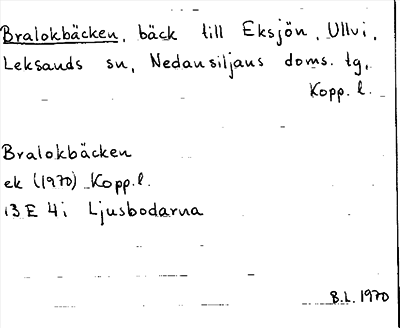 Bralokbäcken, bäck till Eksjön, Ullvi,
Leksands sn, Nedansiljans doms. tg,
Kopp. l.
Bralokbäcken
ek (1970) Kopp.l.
13 E 4i Ljusbodarna
B.L. 1970